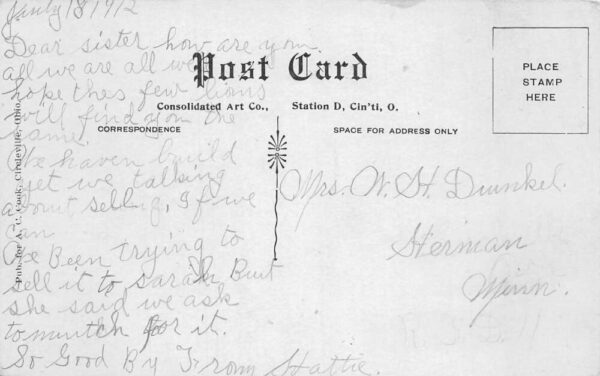 Janry 18 1912
Dear sister how are you
all we are all we
hope thes few lions
will find you the
same
We haven build
yet we talking
about selling, If we
can
We Been trying to
sell it to sarah But
she said we ask
to mutch for it.
So Good By From Hattie.
Post Card
Consolidated Art Co., Station D, Cin'ti, O.
CORRESPONDENCE
SPACE FOR ADDRESS ONLY
PLACE
STAMP
HERE
Mrs. W. H. Dunkel.
Herman
Minn.
Pub. for A. C. Cook, Circleville, Ohio.